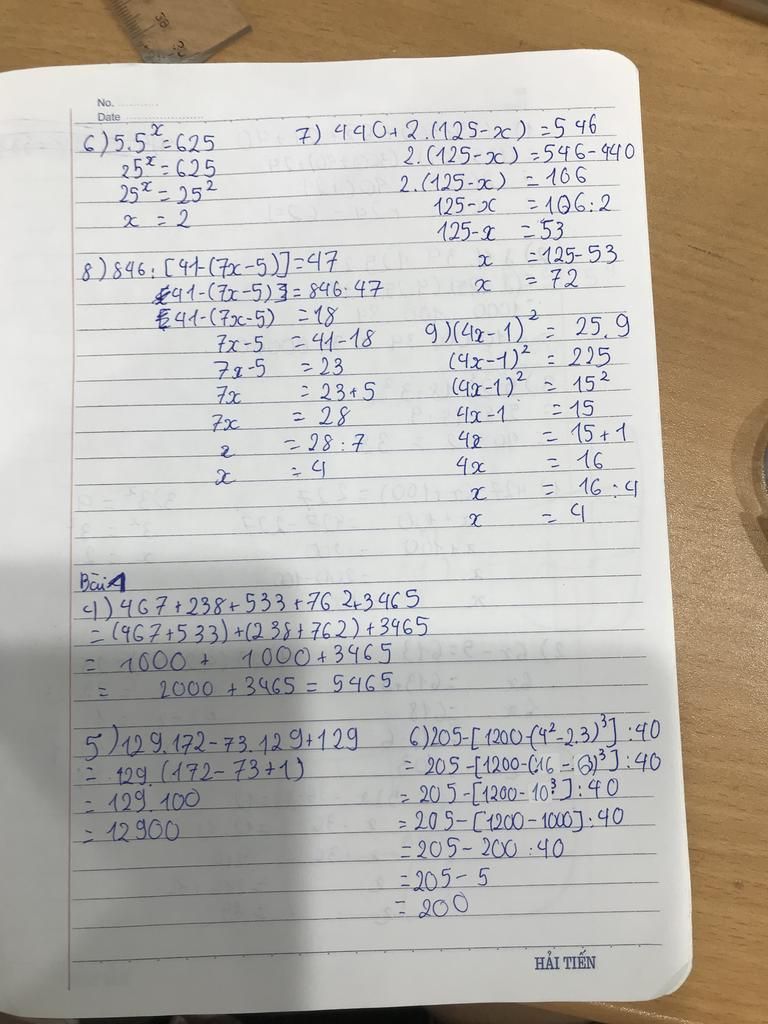 No. ............
Date ........................
6) 5.5^x = 625
25^x = 625
25^x = 25^2
x = 2
7) 440 + 2.(125-x) = 546
2.(125-x) = 546-440
2.(125-x) = 106
125-x = 106:2
125-x = 53
x = 125-53
x = 72
8) 846: [41-(7x-5)] = 47
[41-(7x-5)] = 846:47
41-(7x-5) = 18
7x-5 = 41-18
7x-5 = 23
7x = 23+5
7x = 28
x = 28:7
x = 4
9) (4x-1)^2 = 25.9
(4x-1)^2 = 225
(4x-1)^2 = 15^2
4x-1 = 15
4x = 15+1
4x = 16
x = 16:4
x = 4
Bài 1
4) 467+238+533+762+3465
= (467+533)+(238+762)+3465
= 1000 + 1000+3465
= 2000 + 3465 = 5465
5) 129.172-73.129+129
= 129.(172-73+1)
= 129.100
= 12900
6) 205-[1200-(4^2-2.3)^3]:40
= 205-[1200-(16-6)^3]:40
= 205-[1200-10^3]:40
= 205-[1200-1000]:40
= 205-200:40
= 205-5
= 200
HẢI TIẾN